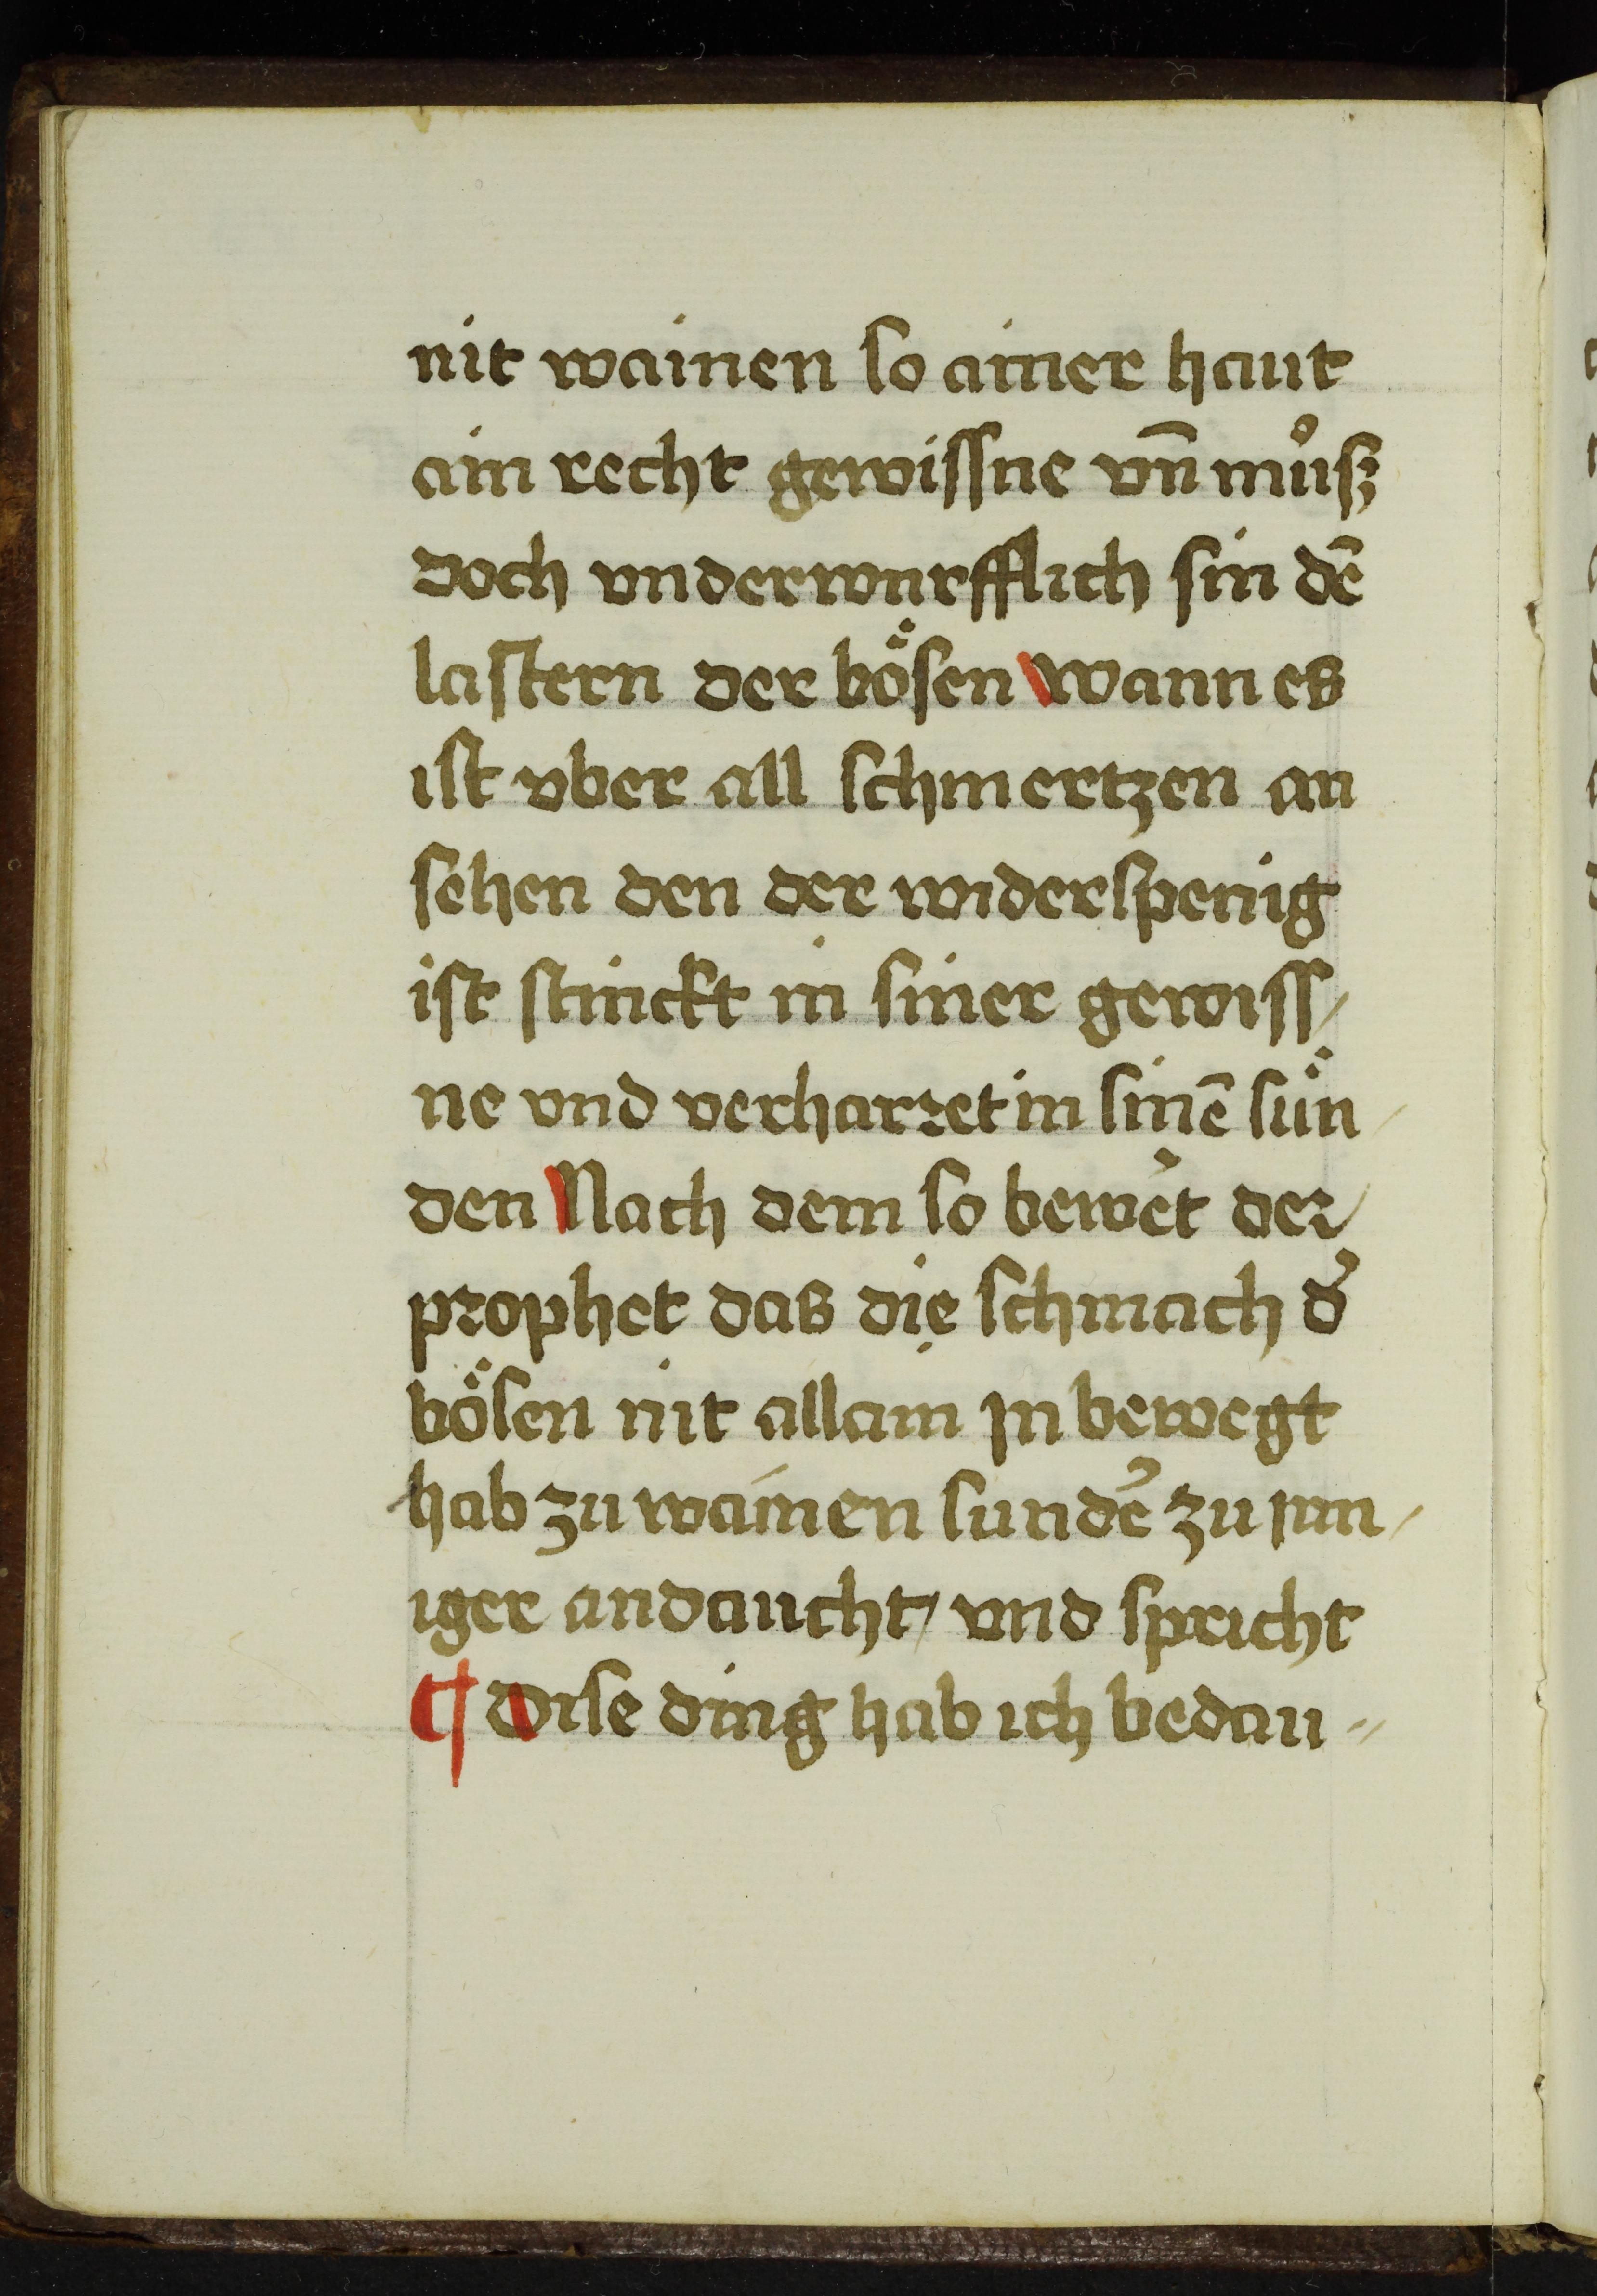 nit wainen so ainer haut
ain recht gewissne vn̄ můsz
doch vnderwurfflich sin dē
lastern der bösen Wann es
ist vber all schmertzen an
sehen den der widerspenig
ist stinckt in siner gewiss/
ne vnd verharret in sinē sün/
den Nach dem so bewèt der/
prophet das die schmach d᷑
bösen nit allain jn bewegt
hab zu wainen sund᷑ zu jnn/
iger andaucht/ vnd spricht
¶ Dise ding hab ich bedau//